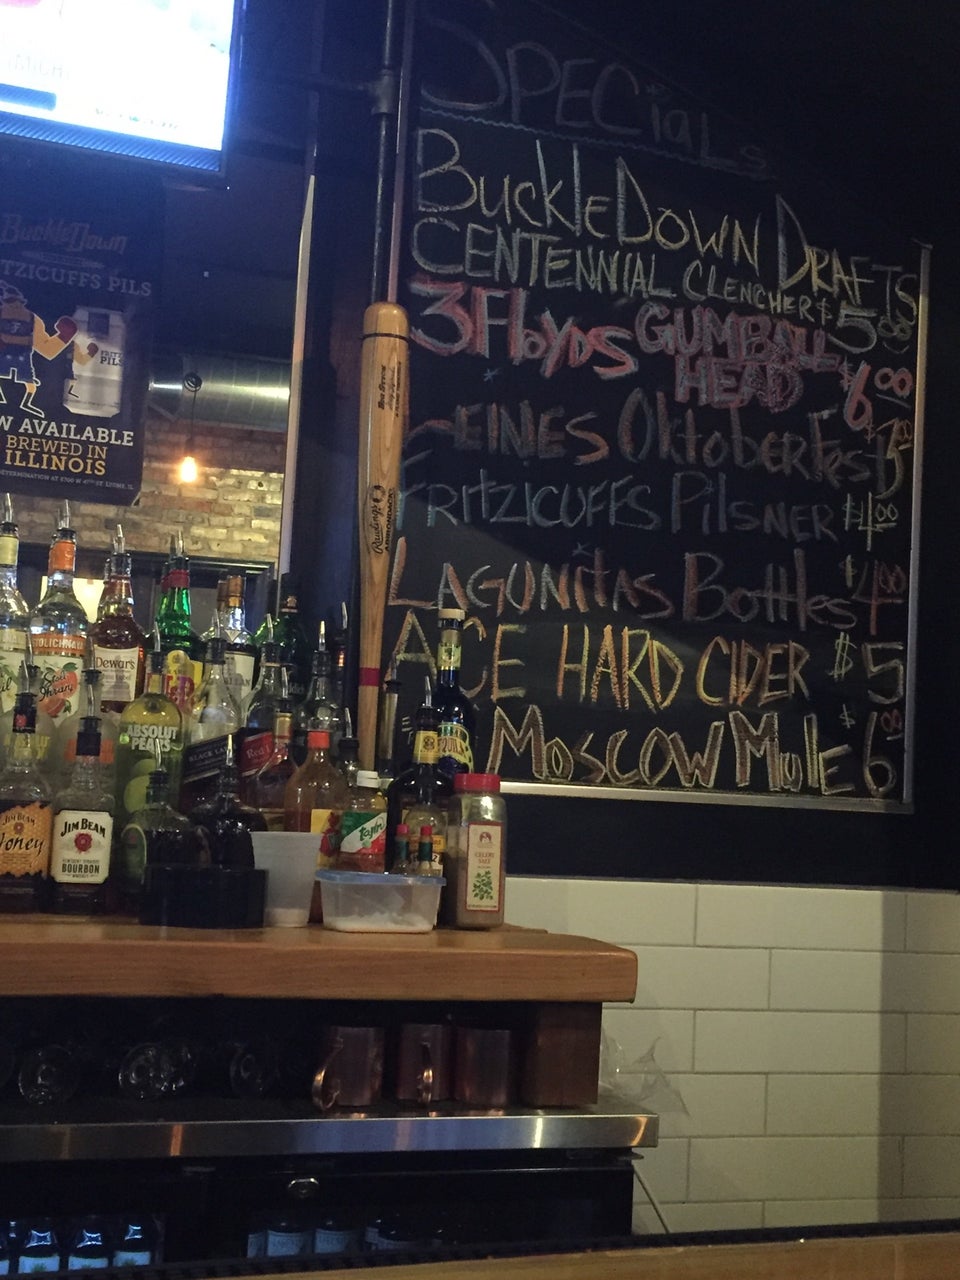 SPECiaLs
BuckleDown DRAFTS
CENTENNIAL CLENCHER $5.00
3 Floyds GUMBALL
HEAD $6.00
EINES OktoberFest
FRitZICUFFS PilSNER $4.00
LAGUNitas Bottles $4.00
ACE HARD CIDER $5
MoscowMule $6.00
BuckleDown
TZICUFFS PILS
FRITZ
PILS
W AVAILABLE
BREWED IN
ILLINOIS
Rawlings
ADIRONDACK
Dewar's
ABSOLUT
PEARS
Red
JIM BEAM
Honey
JIM BEAM
KENTUCKY STRAIGHT
BOURBON
WHISKEY
Tajín
CELERY
SALT